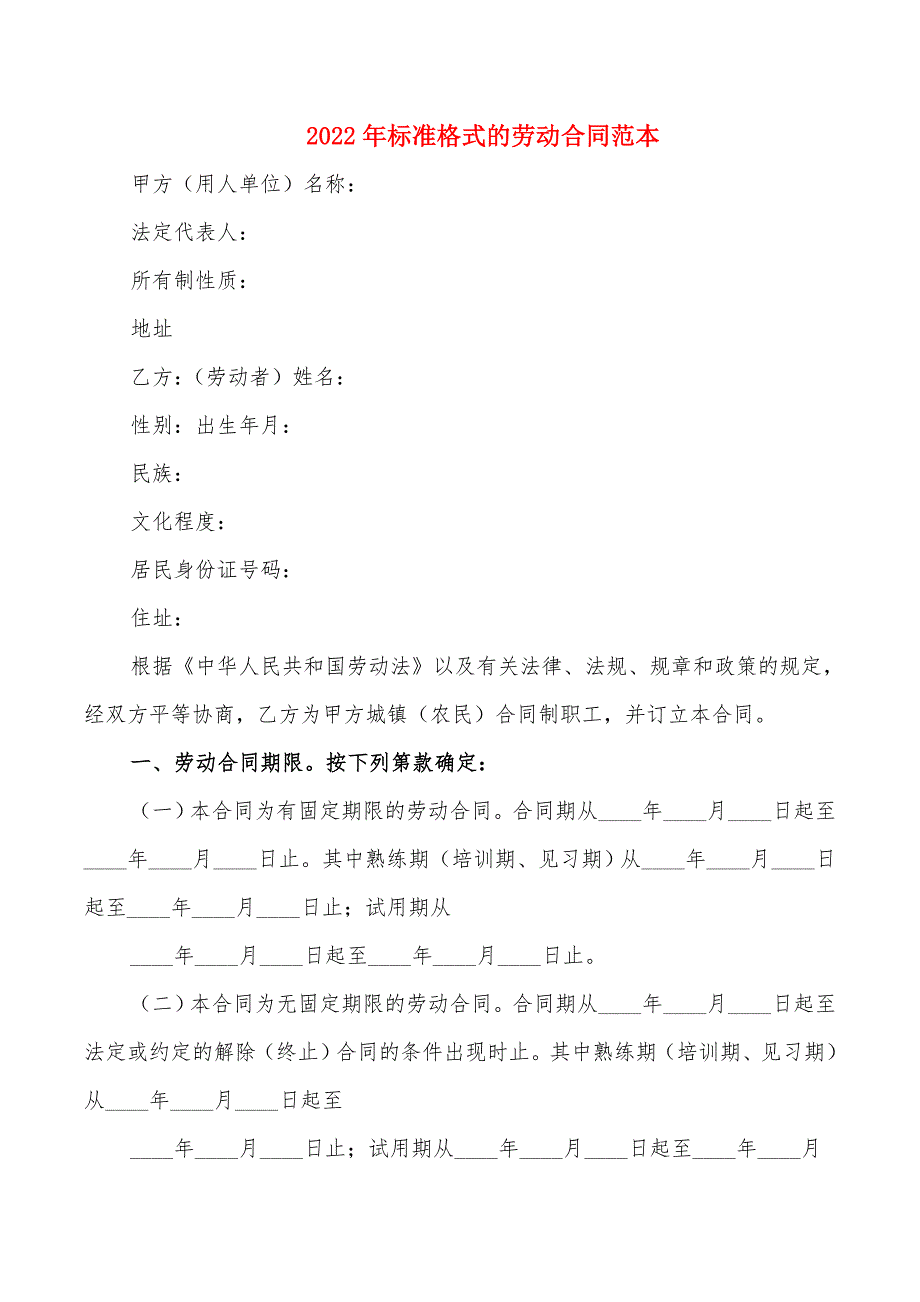 2022年标准格式的劳动合同范本
甲方（用人单位）名称：
法定代表人：
所有制性质：
地址
乙方：（劳动者）姓名：
性别：出生年月：
民族：
文化程度：
居民身份证号码：
住址：
根据《中华人民共和国劳动法》以及有关法律、法规、规章和政策的规定，
经双方平等协商，乙方为甲方城镇（农民）合同制职工，并订立本合同。
一、劳动合同期限。按下列第款确定：
（一）本合同为有固定期限的劳动合同。合同期从____年____月____日起至
____年____月____日止。其中熟练期（培训期、见习期）从____年____月____日
起至____年____月____日止；试用期从
____年____月____日起至____年____月____日止。
（二）本合同为无固定期限的劳动合同。合同期从____年____月____日起至
法定或约定的解除（终止）合同的条件出现时止。其中熟练期（培训期、见习期）
从____年____月____日起至
____年____月____日止；试用期从____年____月____日起至____年____月